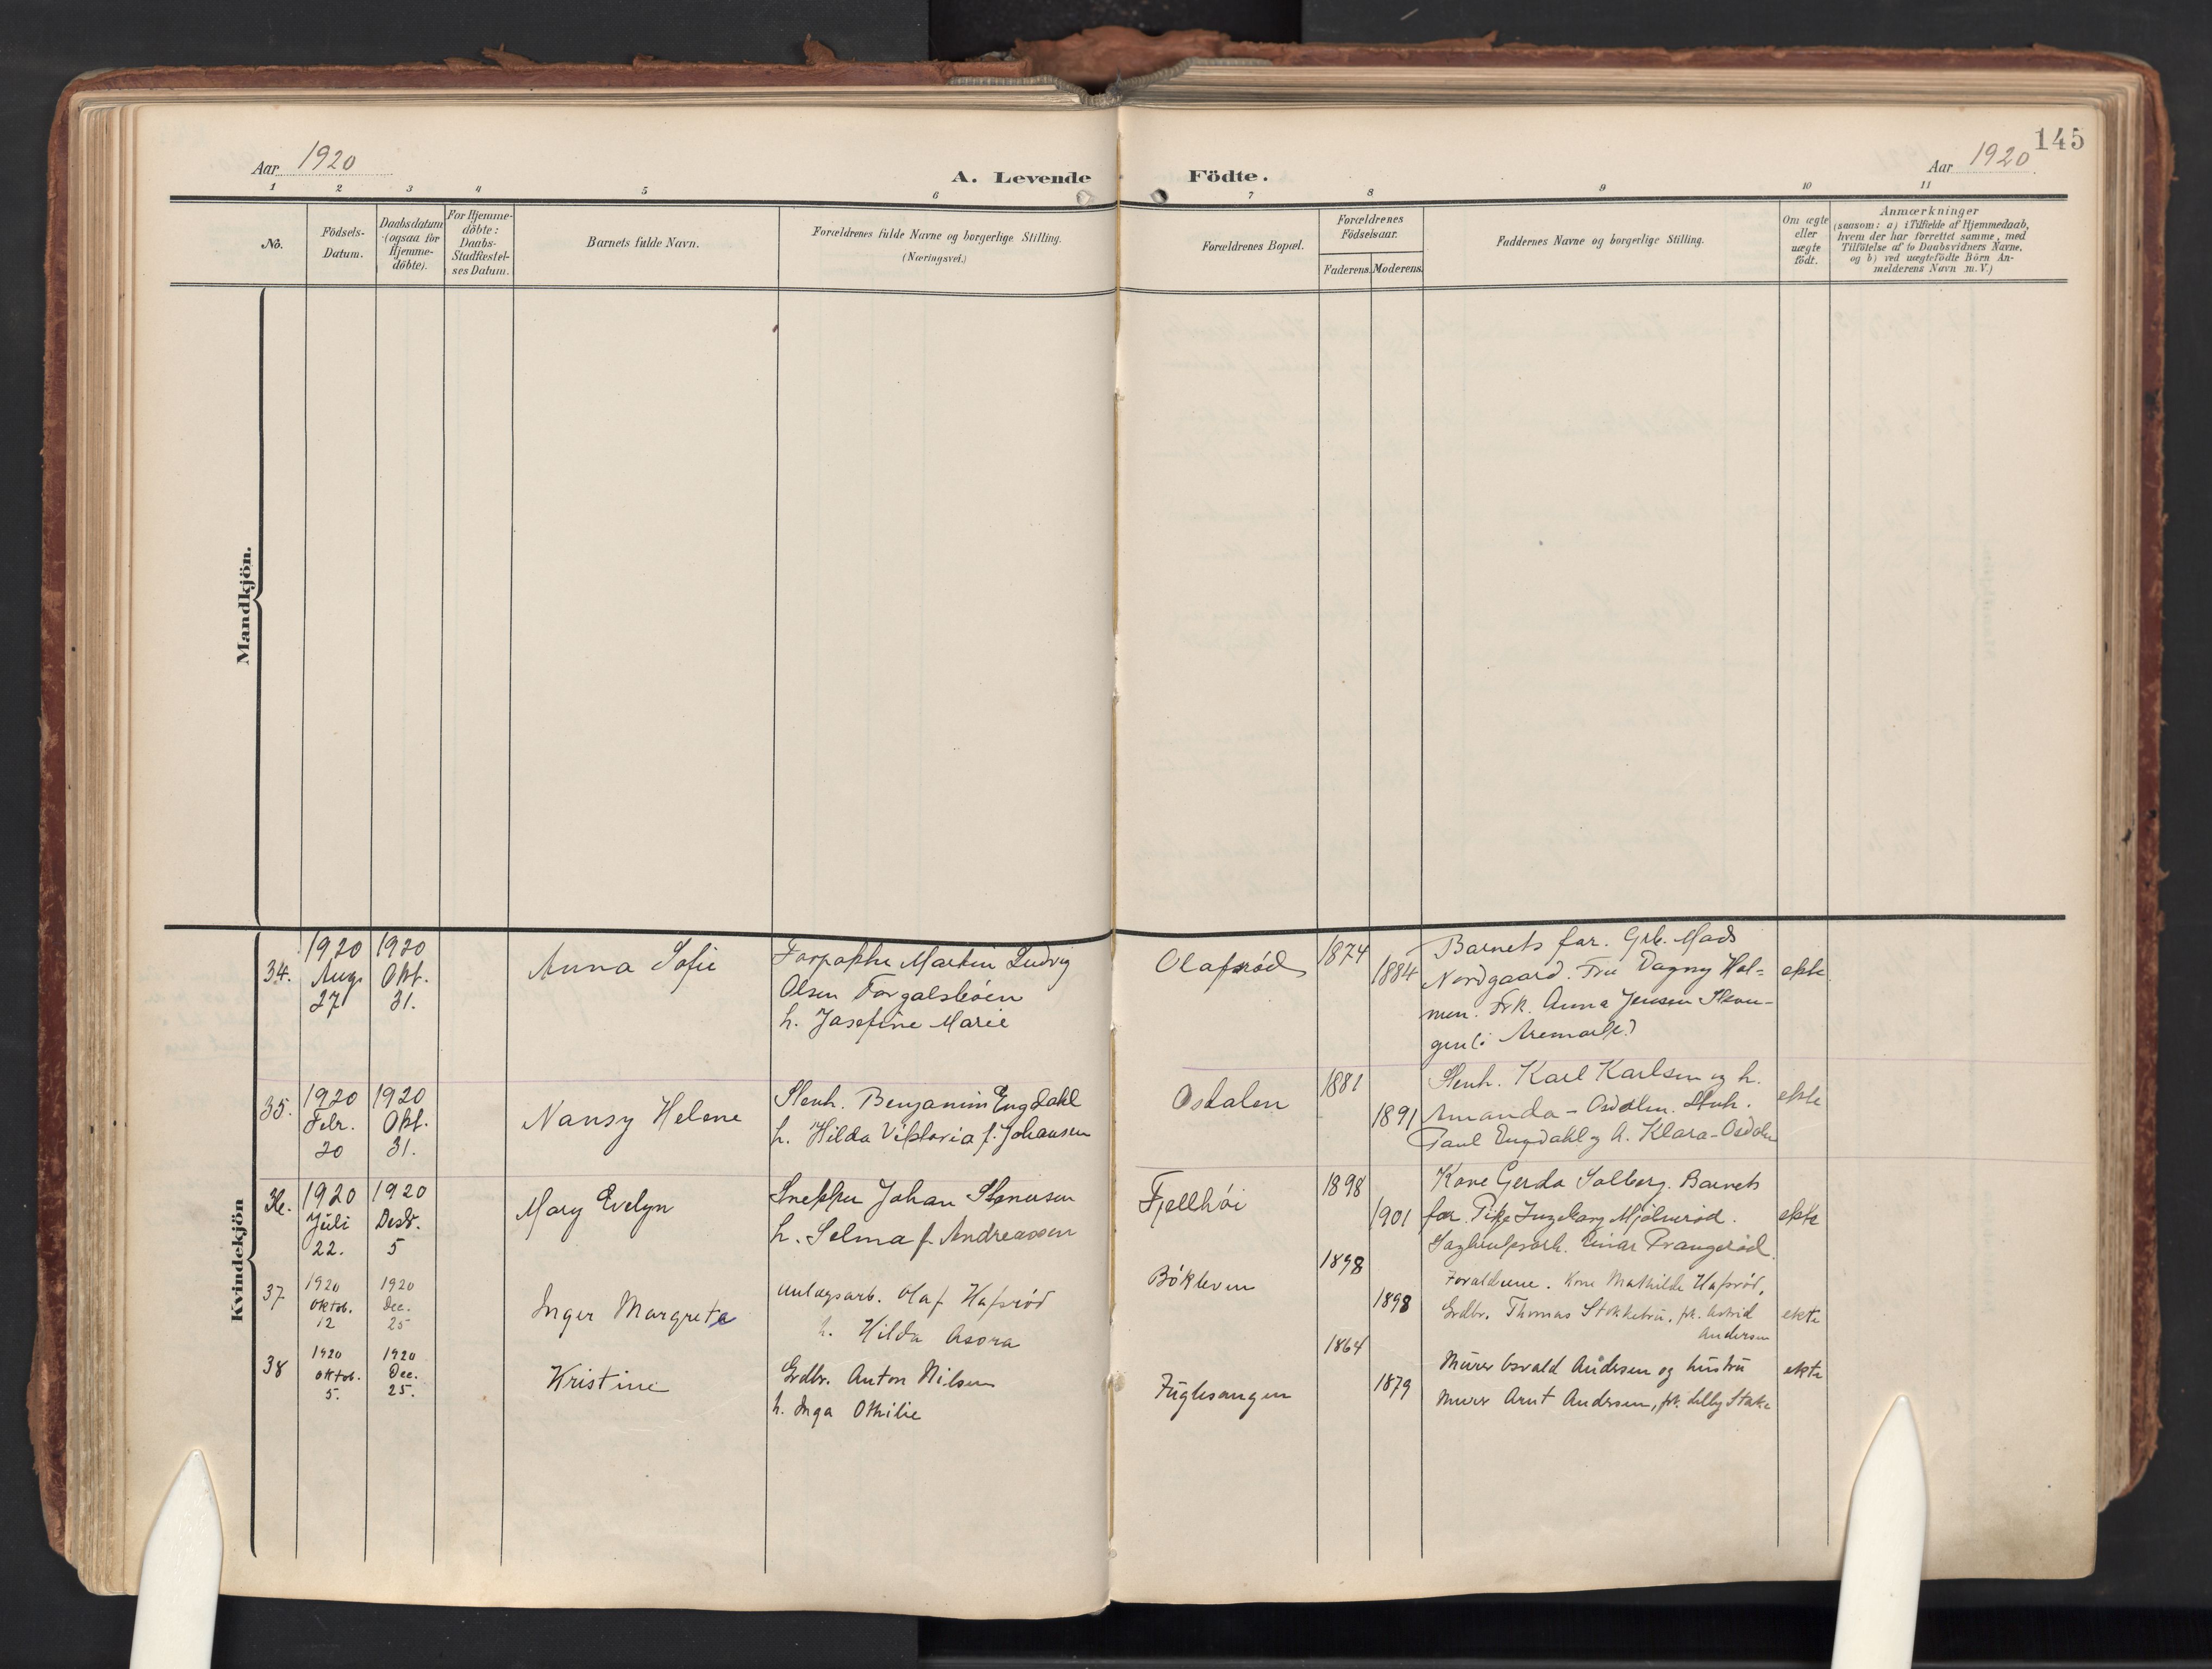 145
Aar 1920
A. Levende Födte.
Aar 1920
1 2 3 4 5 6 7 8 9 10 11
No.
Födsels-
Datum.
Daabsdatum
(ogsaa for
Hjemme-
döbte).
For Hjemme-
döbte:
Daabs-
Stadfestel-
ses Datum.
Barnets fulde Navn.
Forældrenes fulde Navne og borgerlige Stilling.
(Næringsvei.)
Forældrenes Bopæl.
Forældrenes
Födselsaar.
Faderens. Moderens.
Faddernes Navne og borgerlige Stilling.
Om ægte
eller
uægte
födt.
Anmærkninger
(saasom: a) i Tilfælde af Hjemmedaab,
hvem der har forrettet samme, med
Tilföielse af to Daabsvidners Navne,
og b) ved uægtefödte Börn An-
melderens Navn m.V.)
Mandkjön.
Kvindekjön
34.
1920
Aug.
27
1920
Okt.
31.
Anna Sofie
Martin Ludvig
Olsen
h. Josefine Marie
Olafsrød
1874
1884
Barnets far. Grb. Mads
Nordgaard. Fru Dagny Hol-
men. Frk. Anna Jensen
Aremark
ekte
35.
1920
Febr.
20
1920
Okt.
31.
Nansy Helene
Stenh. Benjamin Engdahl
h. Hilda Viktoria f. Johansen
Osdalen
1881
1891
Stenh. Karl Karlsen og h.
Amanda - Osdalen. Stenh.
Paul Engdahl og h. Klara - Osdalen
ekte
36.
1920
Juli
22.
1920
Desb.
5
Mary Evelyn
Snekker Johan
h. Selma f. Andreassen
Fjellhøi
1898
1901
Kone Gerda Solberg. Barnets
far. Pike Ingeborg Mjølnerød.
Einar Prangerød.
ekte
37
1920
oktob.
12
1920
Dec.
25
Inger Margrete
anlægsarb. Olaf Hafsrød
h. Hilda Asora
Bøkleven
1898
1898
Foraldrene. Kone Mathilde Hafsrød,
Grdbr. Thomas Stokkebru, frk. Astrid
Andersen
ekte
38
1920
oktob.
5.
1920
Dec.
25.
Kristine
Grdbr. Anton Nilsen
h. Inga Othilie
Fuglesangen
1864
1879
Murer Osvald Andersen og hustru
Murer Arnt Andersen, frk. Lilly
ekte